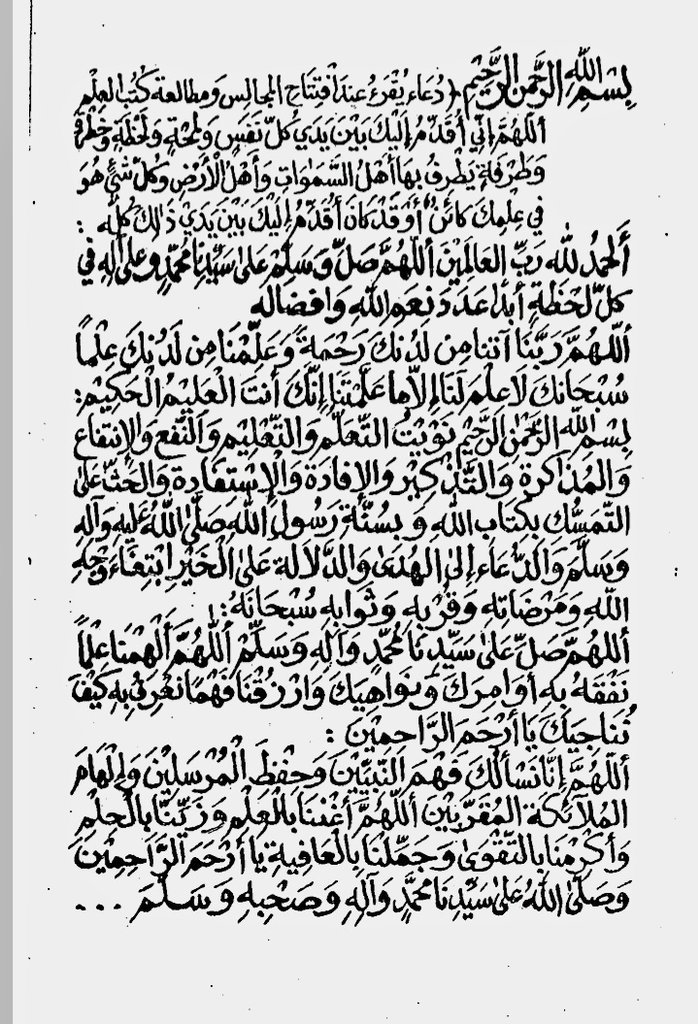 بِسْمِ اللهِ الرَّحْمٰنِ الرَّحِيْمِ (دُعَاء يُقْرَءُ عِنْدَ افْتِتَاحِ المَجَالِسِ وَمطالعة كُتُبِ العِلْمِ
اَللّٰهُمَّ إِنِّي أُقَدِّمُ إِلَيْكَ بَيْنَ يَدَيْ كُلِّ نَفَسٍ وَلَمْحَةٍ وَلَحْظَةٍ وَخَطْرَةٍ
وَطَرْفَةٍ يَطْرِفُ بِهَا أَهْلُ السَّمٰوَاتِ وَأَهْلُ الْأَرْضِ وَكُلِّ شَيْءٍ هُوَ
فِي عِلْمِكَ كَائِنٌ أَوْ قَدْ كَانَ أُقَدِّمُ إِلَيْكَ بَيْنَ يَدَيْ ذَالِكَ كُلِّه :
اَلْحَمْدُ لِلّٰهِ رَبِّ العَالَمِيْنَ اَللّٰهُمَّ صَلِّ وَسَلِّمْ عَلىٰ سَيِّدِنَا مُحَمَّدٍ وعلىٰ آلِهِ فِي
كلِّ لَحْظَةٍ أَبَدًا عَدَدَ نِعَمِ اللهِ وَافْضَالِه
اَللّٰهُمَّ رَبَّنَا آتنا مِن لَدُنكَ رَحْمَةً وَعَلِّمْنَا مِن لَدُنكَ عِلْماً
سُبْحَانَكَ لَا عِلْمَ لَنَا إِلَّا مَا عَلَّمْتَنَا إِنَّكَ أَنتَ الْعَلِيْمُ الْحَكِيْمُ :
بِسْمِ اللهِ الرَّحْمٰنِ الرَّحِيْمِ نَوَيْتُ التَّعَلُّمَ وَالتَّعْلِيْمَ وَالنَّفْعَ وَالْإِنتِفَاعَ
وَالْمُذَاكَرَةَ وَالتَّذْكِيْرَ وَالإِفَادَةَ وَالْإِسْتِفَادَةَ وَالحَثَّ عَلىٰ
التَّمَسُّكِ بِكتَابِ اللهِ وَبِسُنَّةِ رَسُولِ اللهِ صَلَّى اللهُ عَلَيْهِ وَآلِهِ
وَسَلَّمَ وَالدُّعَاءَ إِلىٰ الهُدَىٰ وَالدَّلَالَةَ عَلىٰ الْخَيْرِ ابْتِغَاءَ وَجْهِ
اللهِ وَمَرْضَاتِهِ وَقُرْبِهِ وَثَوَابِهِ سُبْحَانَهُ :
اَللّٰهُمَّ صَلِّ عَلىٰ سَيِّدِنَا مُحَمَّدٍ وَآلِهِ وَسَلِّمْ اَللّٰهُمَّ اَلْهِمْنَا عِلْمًا
نَفْقَهُ بِهِ أَوَامِرَكَ وَنَوَاهِيَكَ وَارْزُقْنَا فَهْمًا نَعْرِفُ بِهِ كَيْفَ
نُنَاجِيْكَ يَا أَرْحَمَ الرَّاحِمِيْنَ :
اَللّٰهُمَّ إِنَّا نَسْأَلُكَ فَهْمَ النَّبِيِّيْنَ وَحِفْظَ الْمُرْسَلِيْنَ وَإِلْهَامَ
المَلَآئِكَةِ المُقَرَّبِيْنَ اَللّٰهُمَّ أَغْنِنَا بِالْعِلْمِ وَزَيِّنَّا بِالْحِلْمِ
وَأَكْرِمْنَا بِالتَّقْوَىٰ وَجَمِّلْنَا بِالْعَافِيَةِ يَا أَرْحَمَ الرَّاحِمِيْنَ
وَصَلَّى اللهُ عَلىٰ سَيِّدِنَا مُحَمَّدٍ وَآلِهِ وَصَحْبِهِ وَسَلَّمَ ...